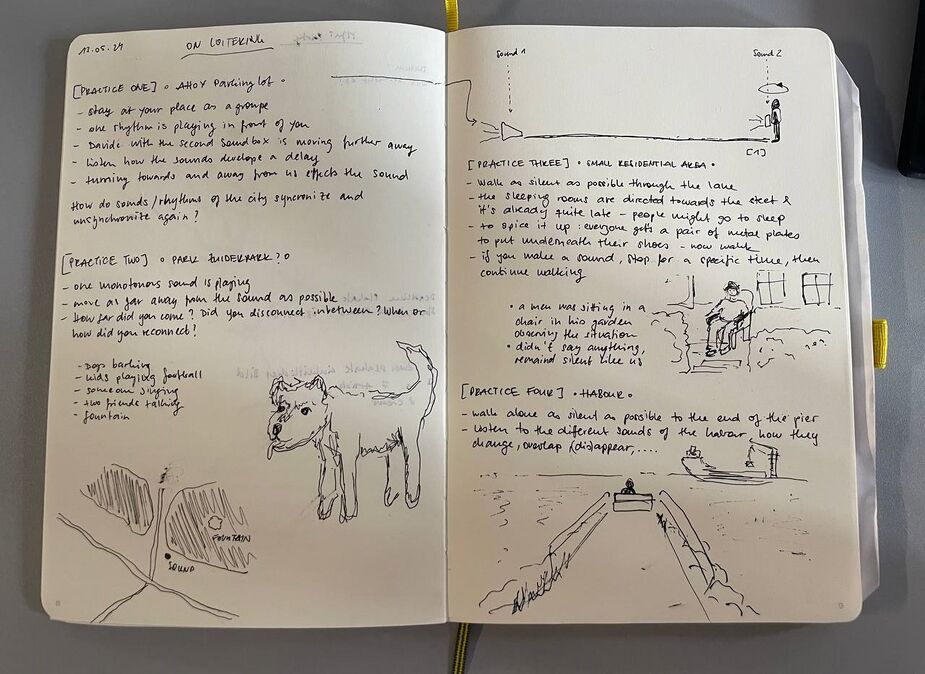 12.05.24
ON LOITERING
[PRACTICE ONE] • AHOY Parking lot •
- stay at your place as a groupe
- one rhythm is playing in front of you
- Davide with the second Sandbox is moving further away
- listen how the sounds develope a delay
- turning towards and away from us effects the sound
How do sounds/rhythms of the city syncronize and
unsynchronize again?
[PRACTICE TWO] • PARK ZUIDERPARK? •
- one monotonous sound is playing
- move as far away from the sound as possible
- How far did you come? Did you disconnect inbetween? When or
how did you reconnect?
- Dogs barking
- kids playing football
- someone singing
- two friends talking
- fountain
FOUNTAIN
SOUND
8
Sound 1
Sound 2
[1]
[PRACTICE THREE] • SMALL RESIDENTIAL AREA •
- Walk as silent as possible through the lane
- the sleeping rooms are directed towards the steet &
it's already quite late - people might go to sleep
- to spice it up: everyone gets a pair of metal plates
to put underneath their shoes - now walk
- if you make a sound, stop for a specific time, then
continue walking
• a men was sitting in a
chair in his garden
observing the situation
• didn't say anything,
remaind silent like us
[PRACTICE FOUR] • HABOUR •
- walk alone as silent as possible to the end of the pier
- listen to the different sounds of the harbour, how they
change, overlap (dis)appear, ....
9